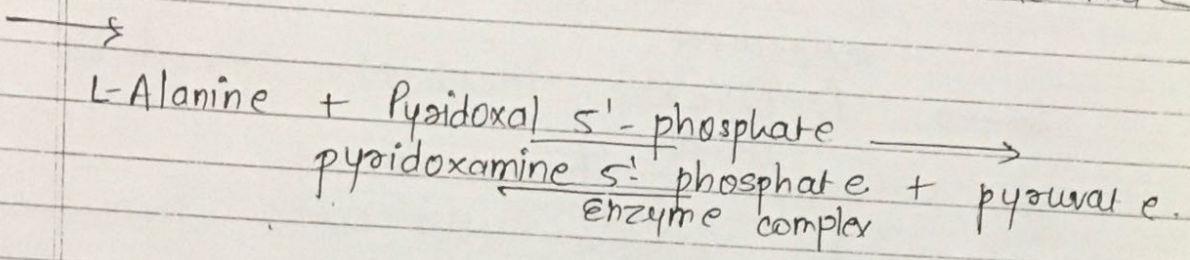 L-Alanine + Pyridoxal 5'-phosphate →
pyridoxamine 5'- phosphate + pyruvate.
Enzyme complex